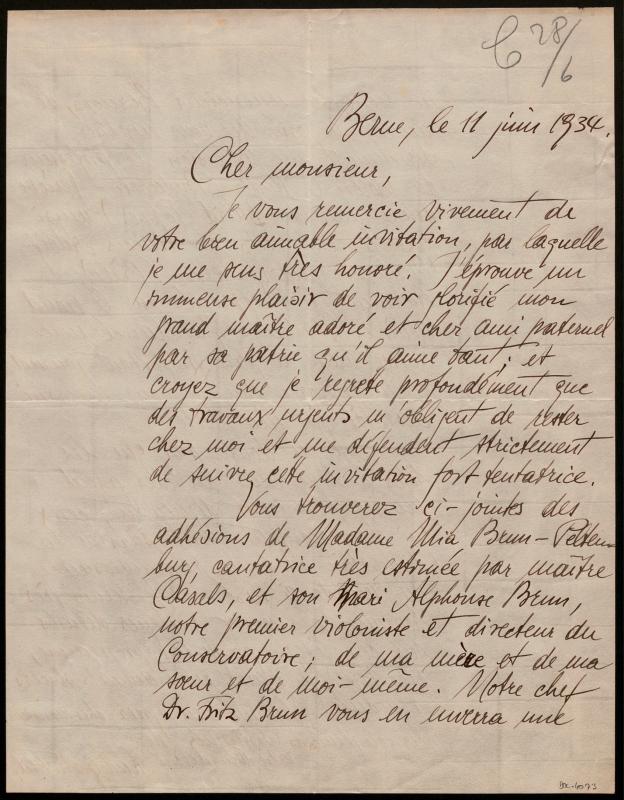 C 28/6
Berne, le 11 juin 1934.
Cher monsieur,
Je vous remercie vivement de
votre bien aimable invitation, par laquelle
je me sens très honoré. J'éprouve un
immense plaisir de voir glorifié mon
grand maître adoré et cher ami paternel
par sa patrie qu'il aime tant; et
croyez que je regrete profondément que
des travaux urgents m'obligent de rester
chez moi et me défendent strictement
de suivre cette invitation fort tentatrice.
Vous trouverez ci-jointes des
adhésions de Madame Mia Brun-Pelten-
burg, cantatrice très estimée par maître
Casals, et son Mari Alphonse Brun,
notre premier violoniste et directeur du
Conservatoire; de ma mère et de ma
soeur et de moi-même. Notre chef
Dr. Fritz Brun vous en enverra une